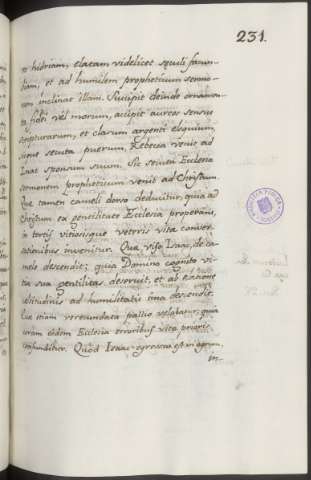 231.
hidriam, elatam videlicet seculi facun-
diam, et ad humilem propheticum sermo-
nem inclinat illam. Suscipit deinde ornamen-
ta fidei vel morum, accipit aureos sensus
scripturarum, et clarum argenti eloquium,
sicque secuta puerum, Rebecca venit ad
Isaac sponsum suum. Sic sequens Ecclesia
sermonem propheticum venit ad Christum.
Quæ tamen cameli dorso deducitur, quia ad
Christum ex gentilitate Ecclesia properans,
in tortis vitiosisque veteris vitæ conver-
sationibus invenitur. Qua viso Isaac, de ca-
melo descendit; quia Domino cognito vi-
tia sua gentilitas deseruit, et ab elatione
celsitudinis ad humilitatis ima descendit.
Quæ etiam verecundata pallio velatur; quia
coram eodem Ecclesia erroribus vitæ prioris
confunditur. Quod Isaac egressus est in agrum,